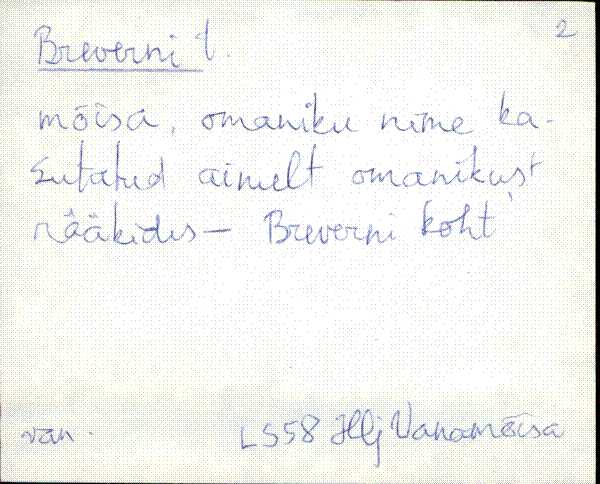 2
Breverni t.
mõisa, omaniku nime ka-
sutatud ainult omanikust
rääkides — Breverni koht
van.
LS58 Hlj Vanamõisa